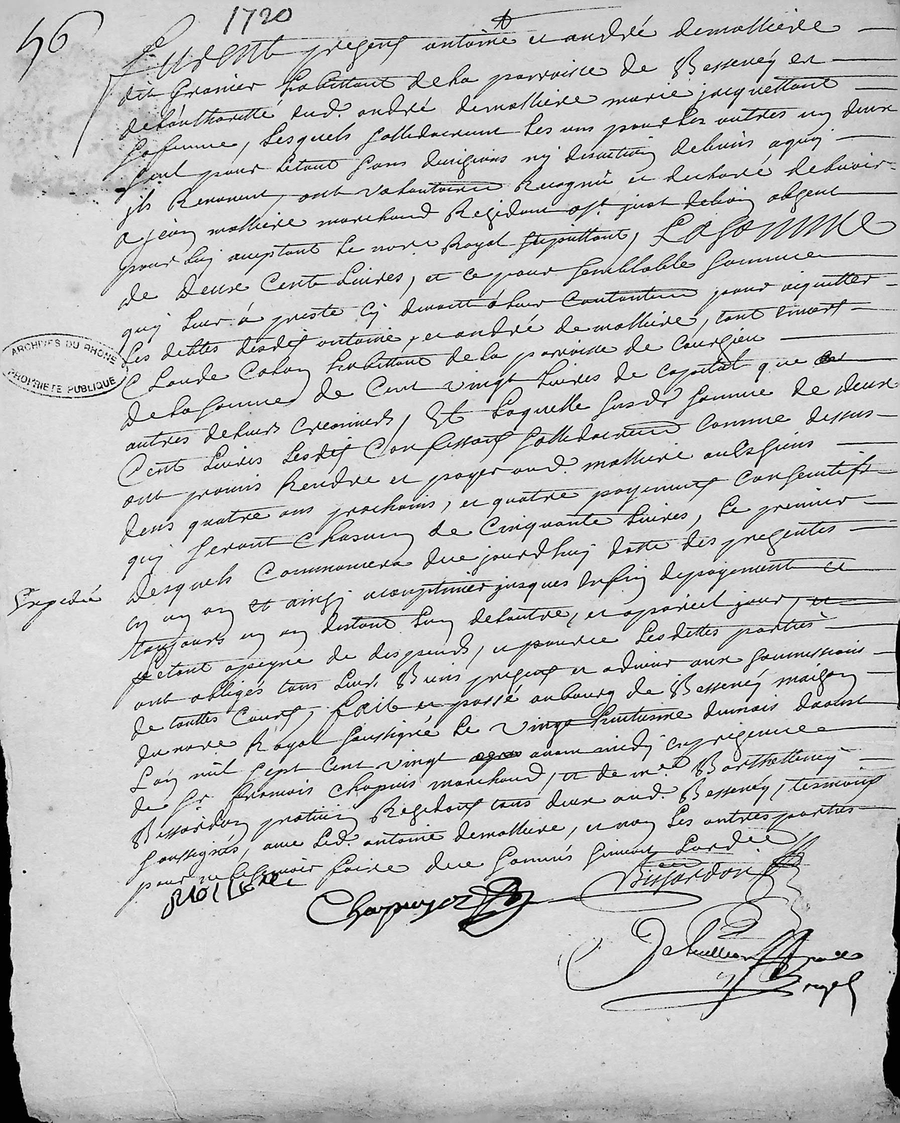 56
1720
furent presens antoine et andré demolliere
dit Granier habittant de la parroisse de Bessenéy et
de Lauthoritté dud. andré demolliere marie jacquettant
sa femme, Lesquels sollidairemt Les uns pour Les autres un deux
seul pour Letout sans divizions nj discution de biens a quoy
jls Renoncent, ont vollontairemt Recognu et declaré debvoir
a jean molliere marchand Residant pnt
pour Luy acceptant Le nore Royal stipullant, La somme
de deux Cent Livres, et ce pour semblable somme
quj Leur a presté cy devant à Leur contantemt pour aiquitter
Les debtes desdts antoine et andré demolliere, tant envert
Claude Colon habittant de la parroisse de Courzieu
de la somme de Cent vingt Livres de capital que
autres de Leurs creanciers, Et Laquelle susde somme de deux
Cent Livres Lesdts Confessants sollidairemt comme dessus
ont promis Rendre et payer aud. molliere
dens quatre ans prochains, et quatre payements consecutifs
quj seront chascun de Cinquante Livres, Le premier
desquels commancera du jourdhuy datte des presentes
en un an et ainsj acomptinuer jusques en fin de payement
toujours un an distant Lun de Lautre, et apareil jour,
Letout apeyne de despends, et pource Lesdittes parties
ont obligés tous Leurs Biens presents et advenir aux soumissions
de touttes Cours, fait et passé au bourg de Bessenéy maison
du nore Royal soussigné Le vingt huitiesme du mois daoust
Lan mil sept cent vingt avant midj en presence
de sr francois Chapuis marchand, et de me Barthellemy
Bissardon praticien Residents tous deux aud. Bessenéy, tesmoins
soussignés, avec Led. antoine demolliere, et non Les autres parties
pour ne scavoir faire de ce sommés suivant Lordce
Expedié
ARCHIVES DU RHONE
PROPRIETE PUBLIQUE
Chapuys
Bissardon
Royal